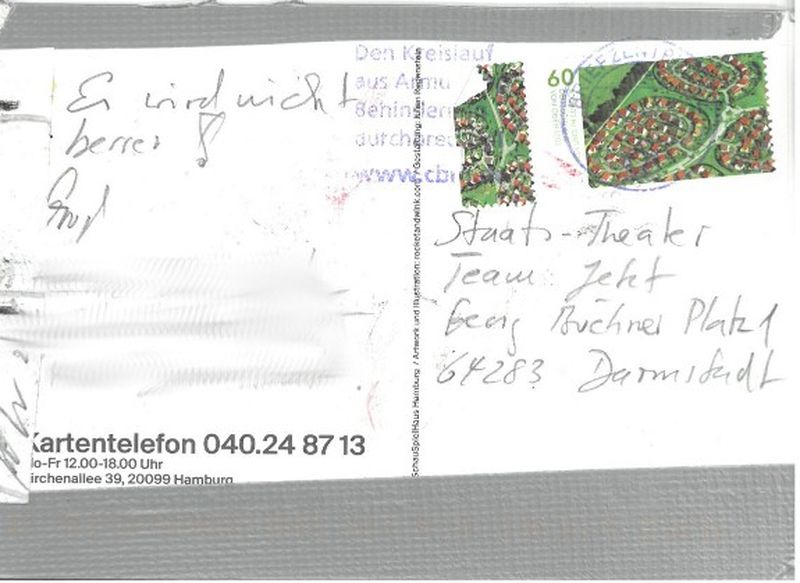 Es wird nicht
besser
Den Kreislauf
aus Armu
Behinder
durchbre
www.cbm
60
Staats-Theater
Team Jetzt
Georg Büchner Platz 1
64283 Darmstadt
Kartentelefon 040.24 87 13
Mo-Fr 12.00-18.00 Uhr
Kirchenallee 39, 20099 Hamburg
SchauSpielHaus Hamburg / Artwork und Illustration: rocketandwink.com / Gestaltung: Julian Regenstein